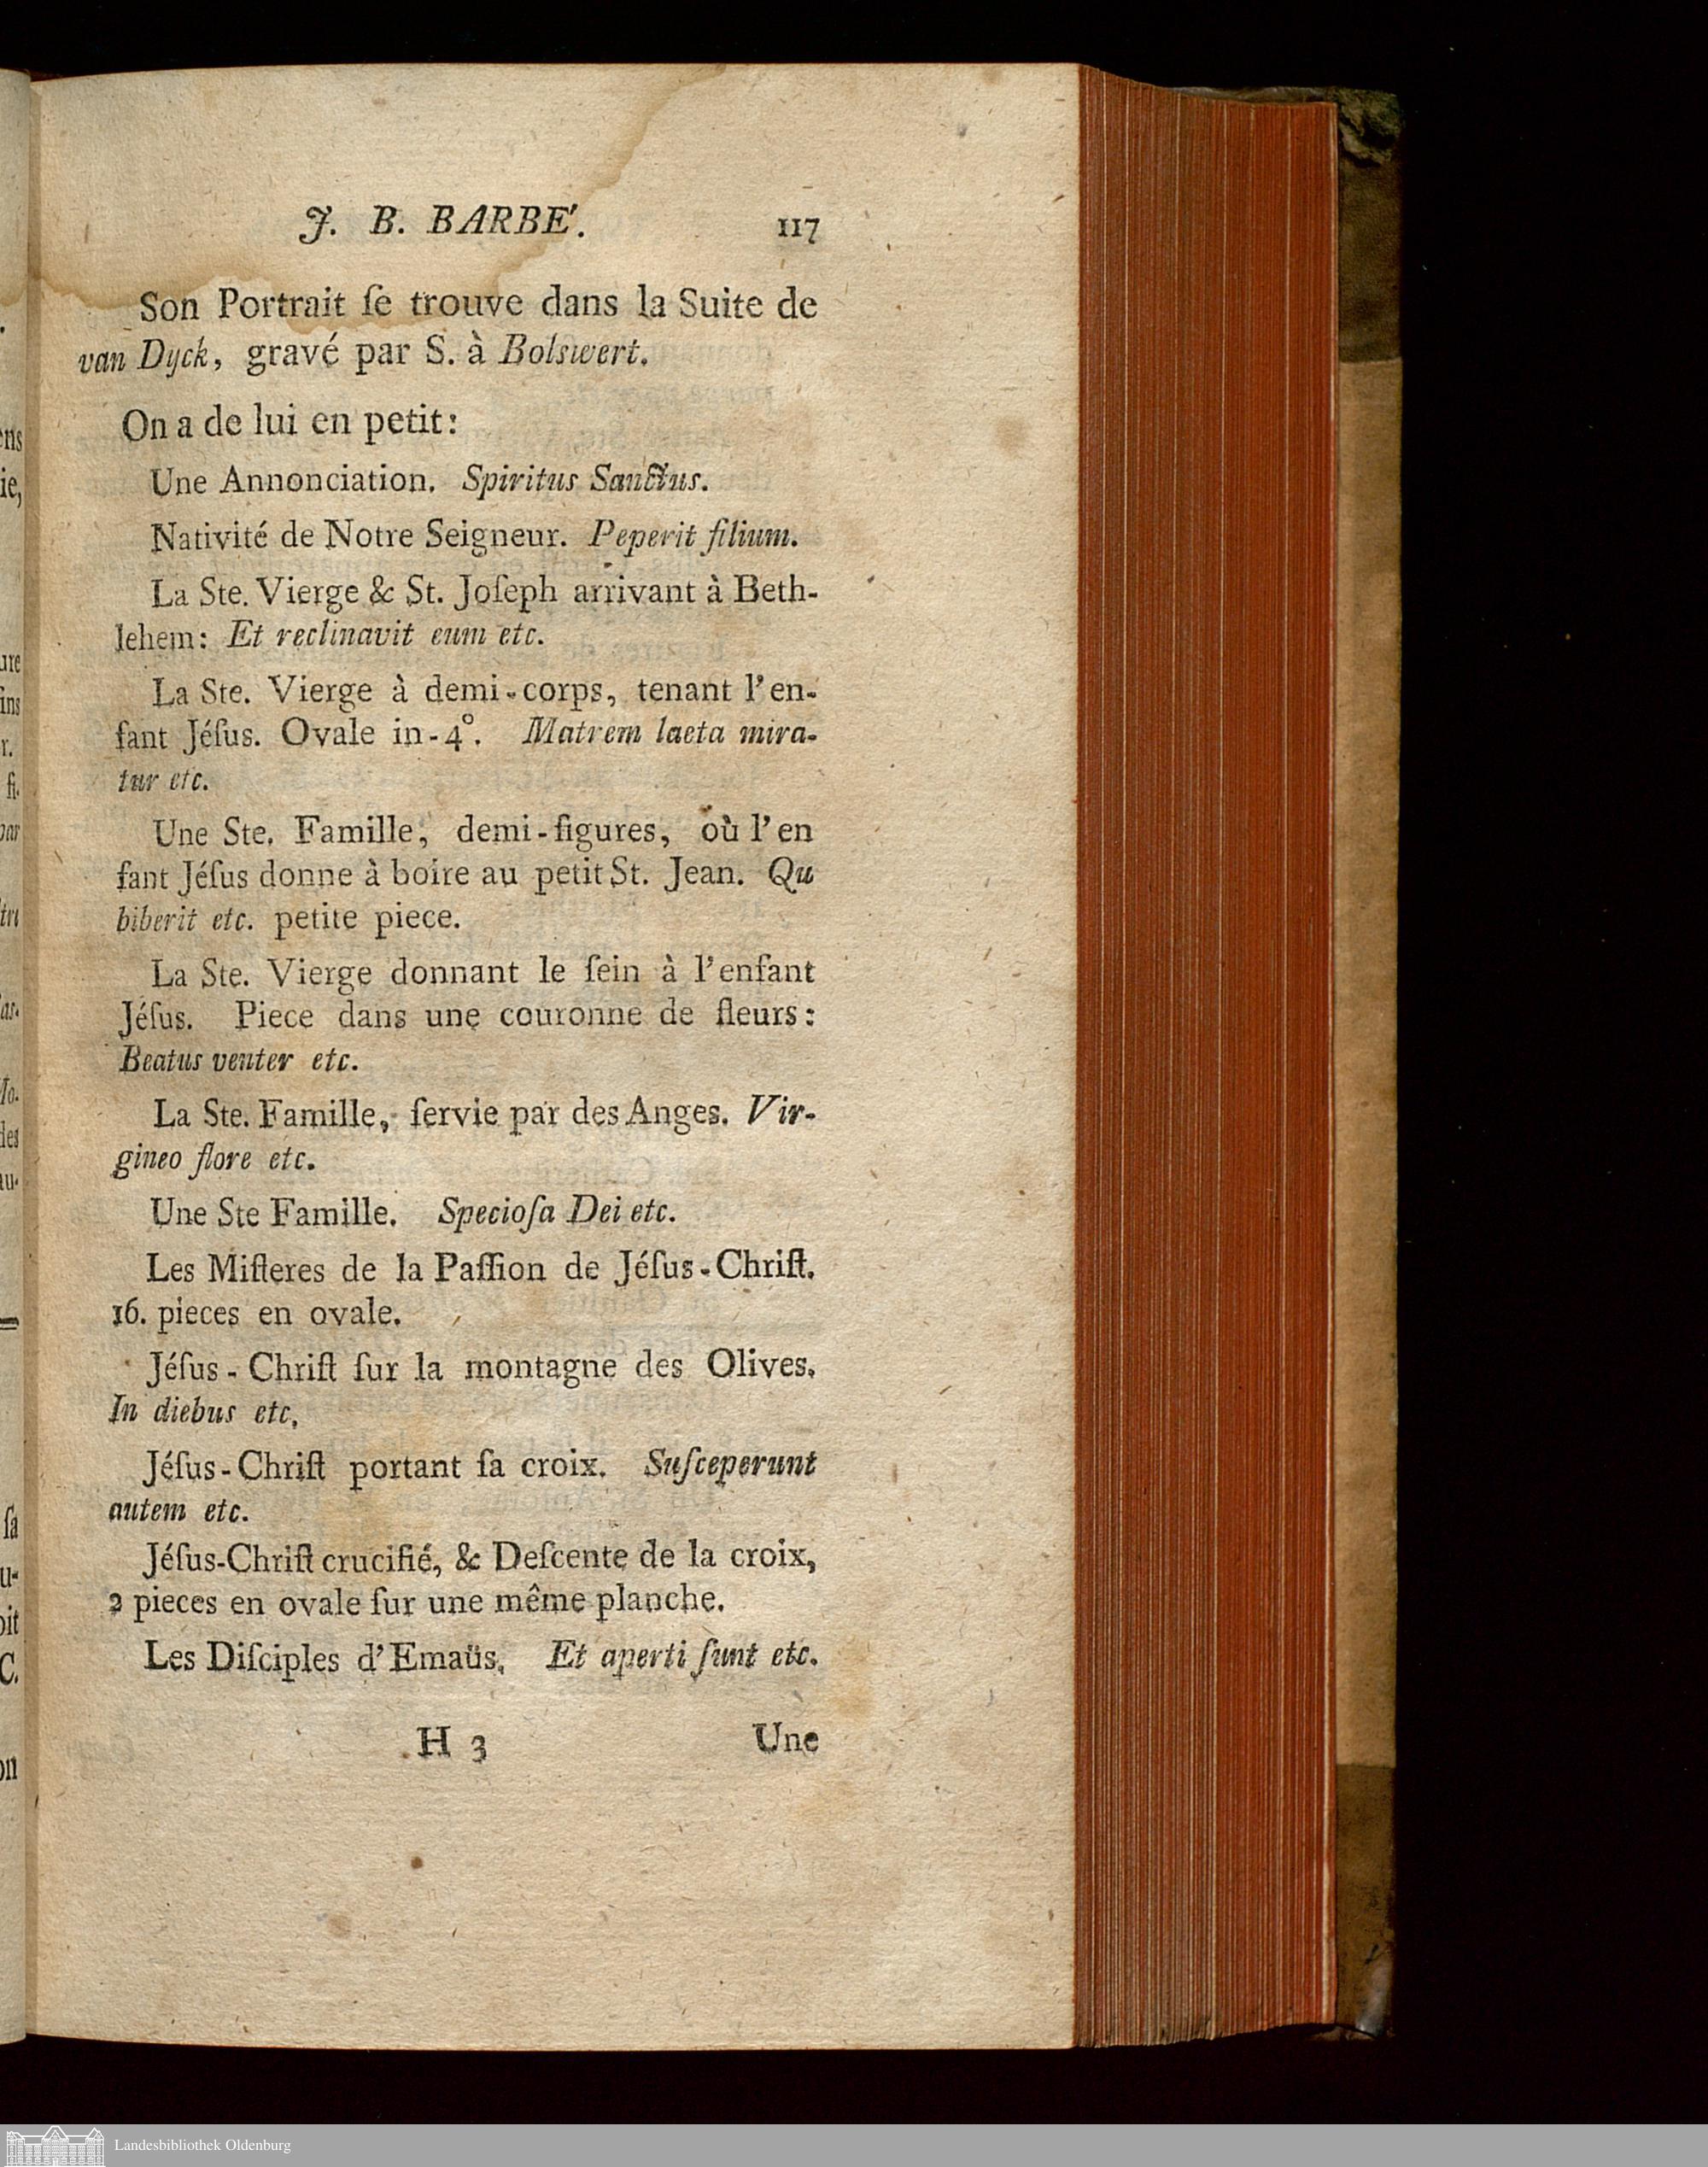 J. B. BARBE'. 117
Son Portrait ſe trouve dans la Suite de
van Dyck, gravé par S. à Bolswert.
On a de lui en petit:
Une Annonciation. Spiritus Sanctus.
Nativité de Notre Seigneur. Peperit filium.
La Ste. Vierge & St. Joſeph arrivant à Beth-
lehem: Et reclinavit eum etc.
La Ste. Vierge à demi-corps, tenant l'en-
fant Jéſus. Ovale in-4°. Matrem laeta mira-
tur etc.
Une Ste. Famille, demi-figures, où l'en
fant Jéſus donne à boire au petit St. Jean. Qu
biberit etc. petite piece.
La Ste. Vierge donnant le ſein à l'enfant
Jéſus. Piece dans une couronne de fleurs:
Beatus venter etc.
La Ste. Famille, ſervie par des Anges. Vir-
gineo flore etc.
Une Ste Famille. Specioſa Dei etc.
Les Miſteres de la Paſſion de Jéſus-Chriſt.
16. pieces en ovale.
Jéſus-Chriſt ſur la montagne des Olives.
In diebus etc.
Jéſus-Chriſt portant ſa croix. Suſceperunt
autem etc.
Jéſus-Chriſt crucifié, & Deſcente de la croix,
2 pieces en ovale ſur une même planche.
Les Diſciples d'Emaüs. Et aperti ſunt etc.
H 3 Une
Landesbibliothek Oldenburg